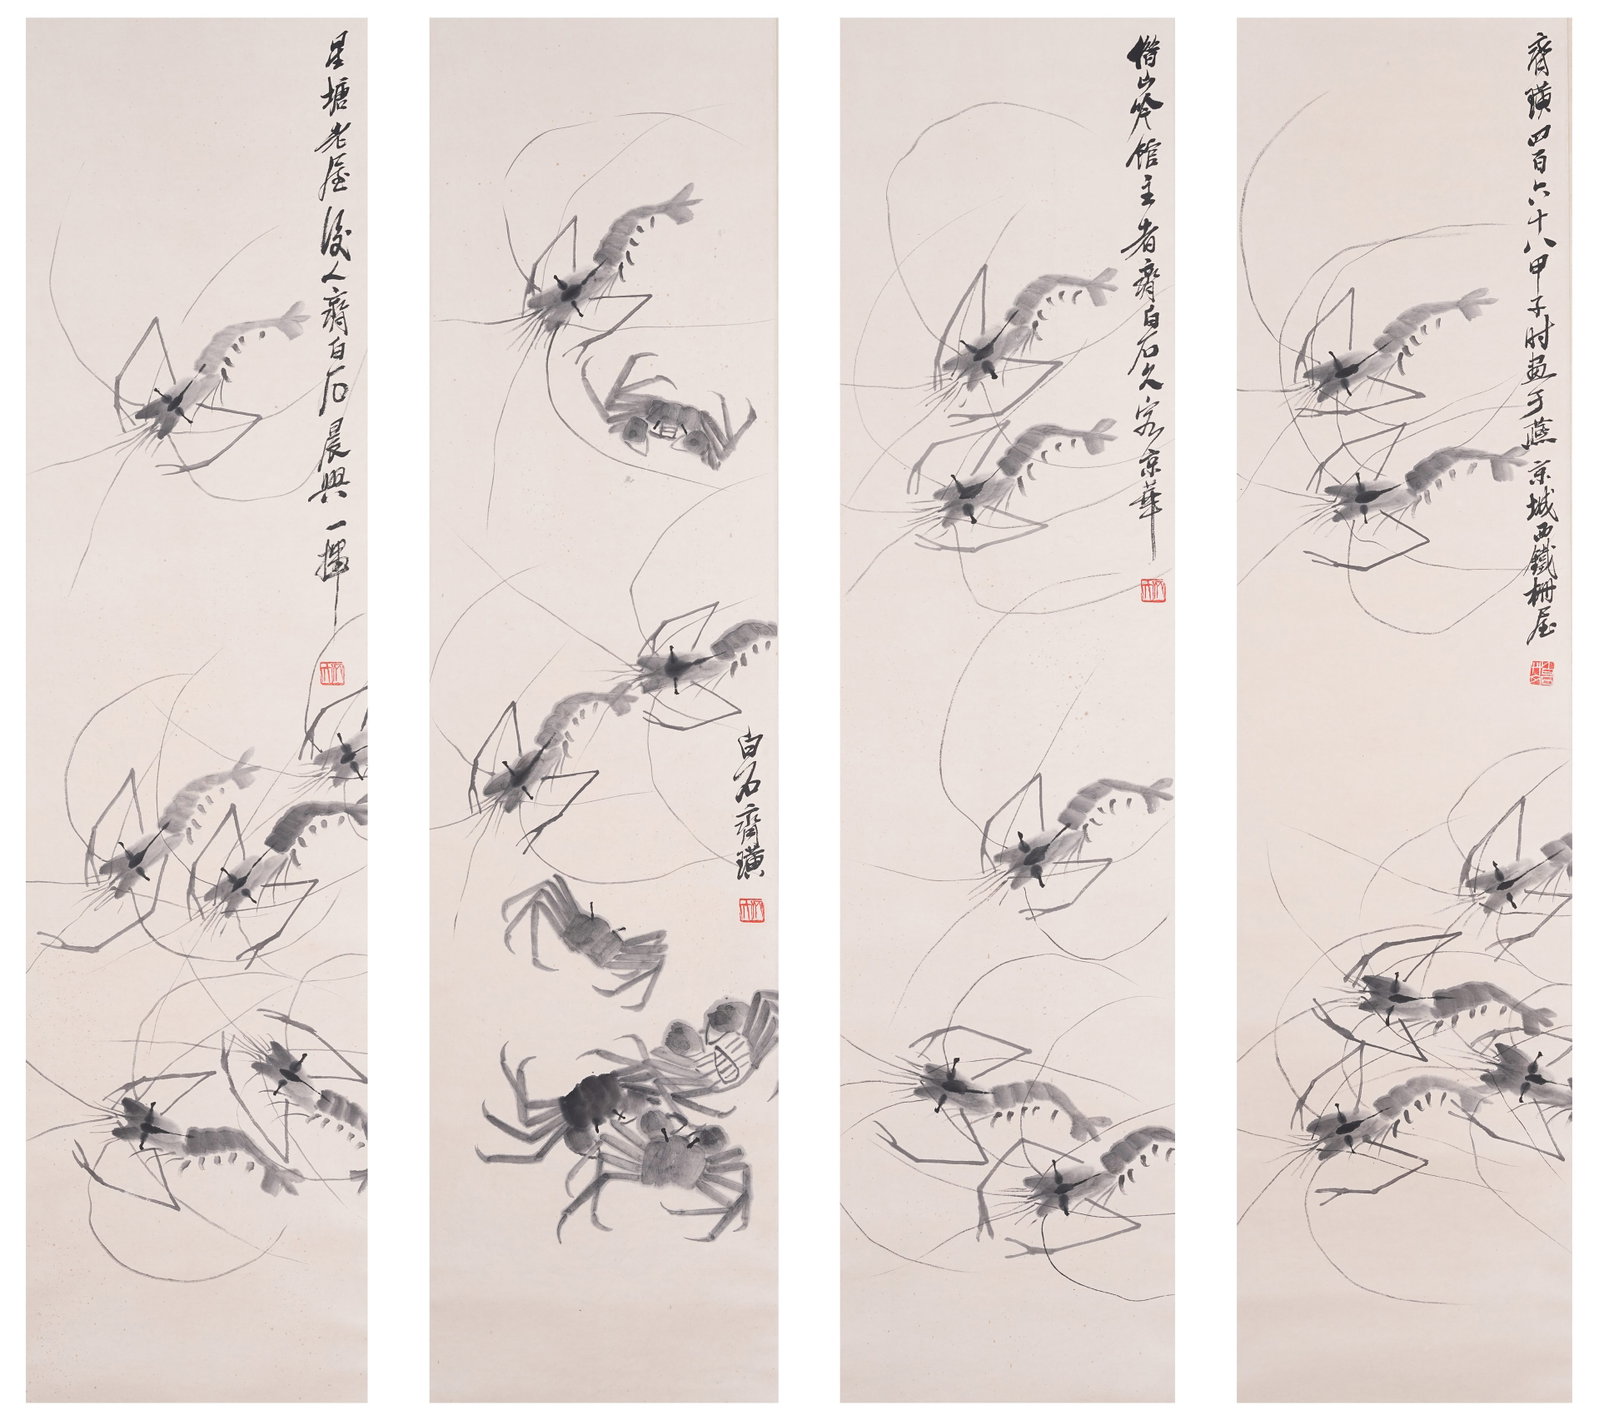 齊璜四百六十八甲子时画于燕京城西鐵栅屋
借山吟馆主者齊白石久客京華
白石齊璜
星塘老屋後人齊白石晨興一揮